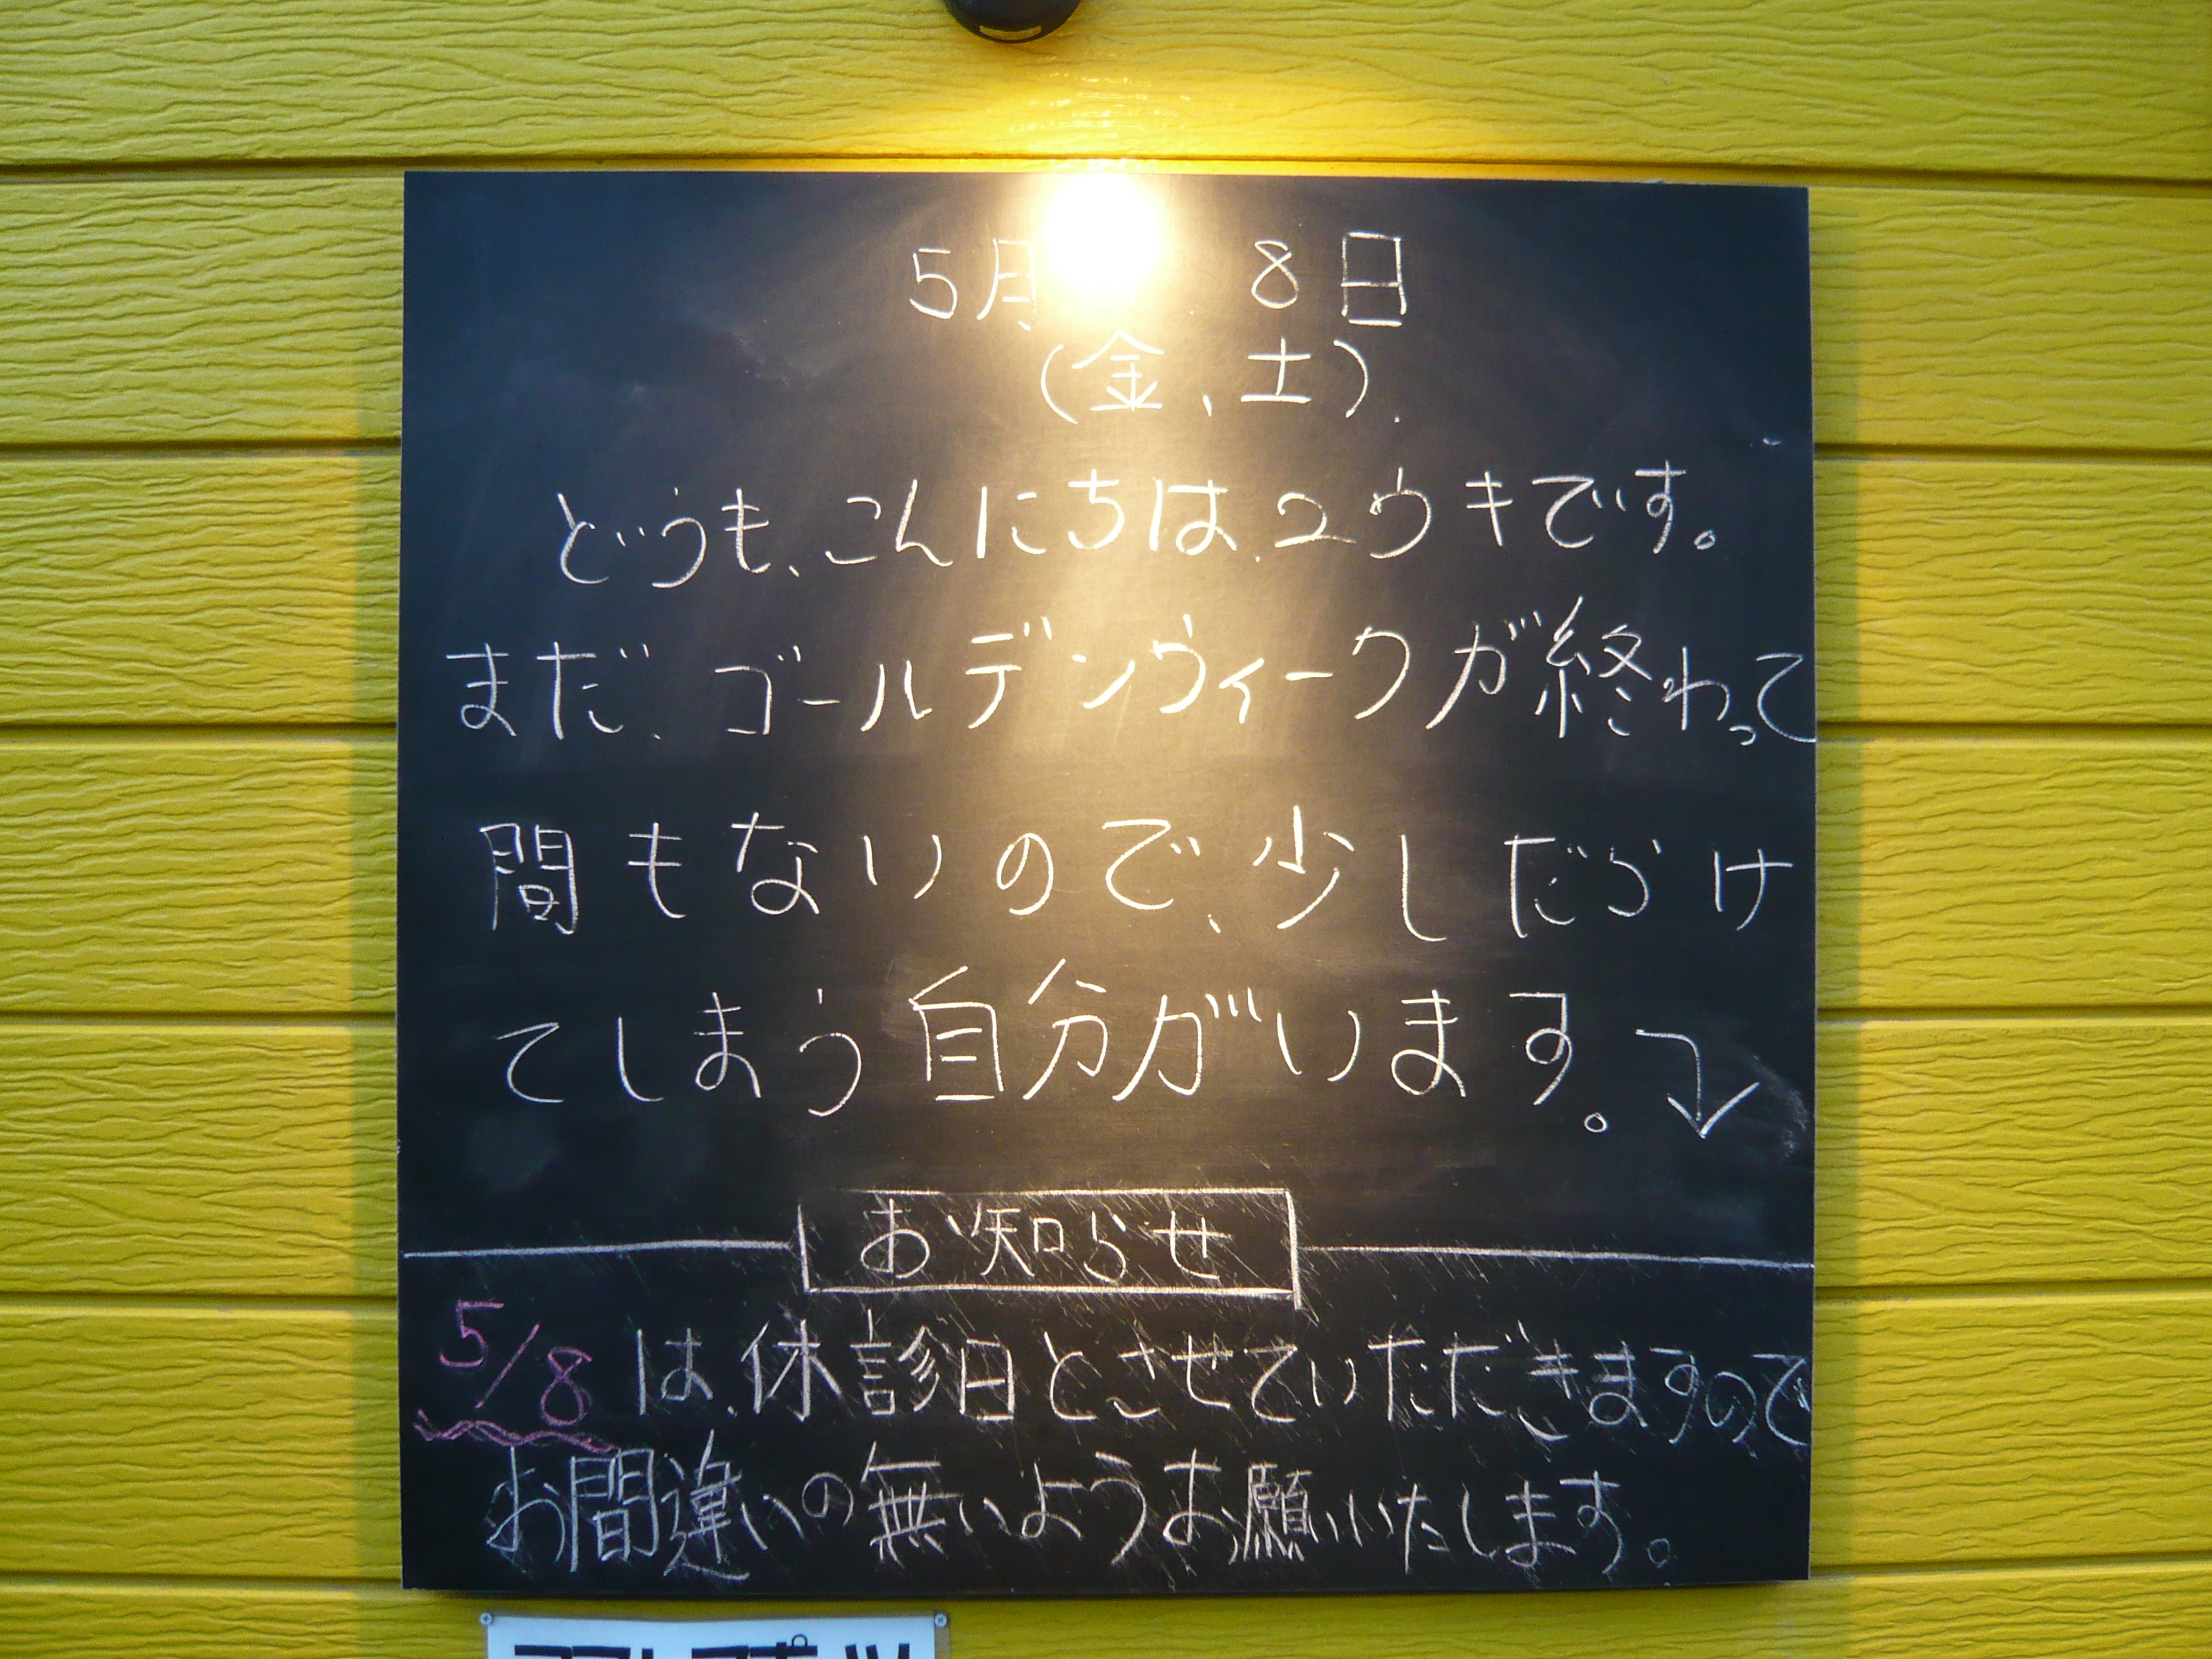 5月 8日
(金、土).
どうも、こんにちは、ユウキです。
まだ、ゴールデンウィークが終わって
間もないので、少しだらけ
てしまう自分がいます。
お知らせ
5/8は、休診日とさせていただきますので
お間違いの無いようお願いいたします。